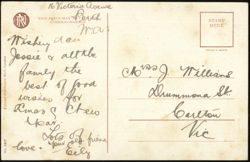 16 Victoria Avenue
Perth
W.A.
STAMP
HERE
Wishing dear
Jessie & all the
family the
best of good
wishes for
Xmas & New
Year.
Lots of
love.
your old friend
Mrs J. Williams.
Drummond St.
Carlton
Vic